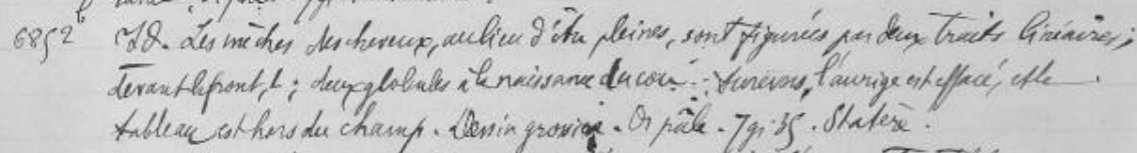 6852ᵇ Id. Les mèches des cheveux, au lieu d'être pleines, sont figurées par deux traits linéaires;
devant le front, t; deux globules à la naissance du cou. - Au revers, l'aurige est effacé, et le
tableau est hors du champ. Dessin grossier. Or pâle. 7 gr. 35. Statère.